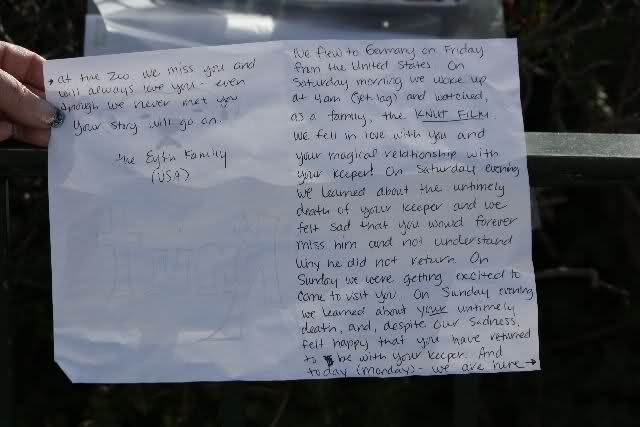 We flew to Germany on Friday
from the United States. On
Saturday morning we woke up
at 4am (jet lag) and watched,
as a family, the KNUT FILM.
We fell in love with you and
your magical relationship with
your keeper! On Saturday evening
we learned about the untimely
death of your keeper and we
felt sad that you would forever
miss him and not understand
why he did not return. On
Sunday we were getting excited to
come to visit you. On Sunday evening
we learned about your untimely
death, and, despite our sadness,
felt happy that you have returned
to be with your keeper. And
today (monday) - we are here →
→ at the Zoo. We miss you and
will always love you - even
though we never met you
Your story will go on.
the Family
(USA)